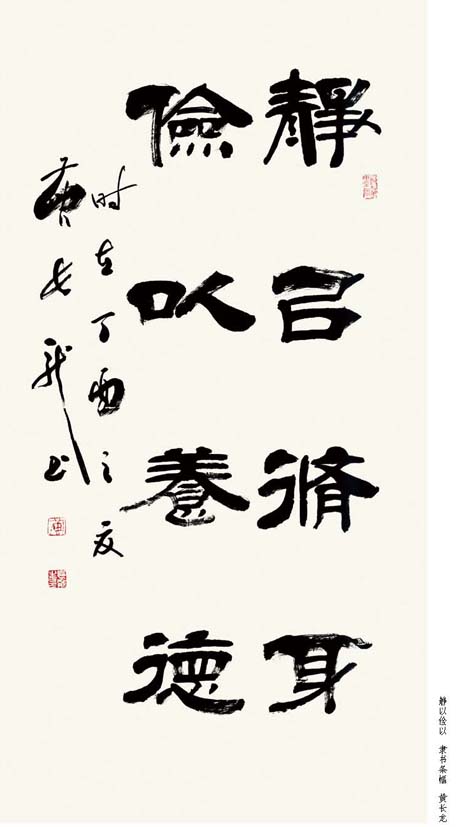 靜㠯脩身
儉以養德
时在丁酉之夏
黄长龙书
静以俭以 隶书条幅 黄长龙